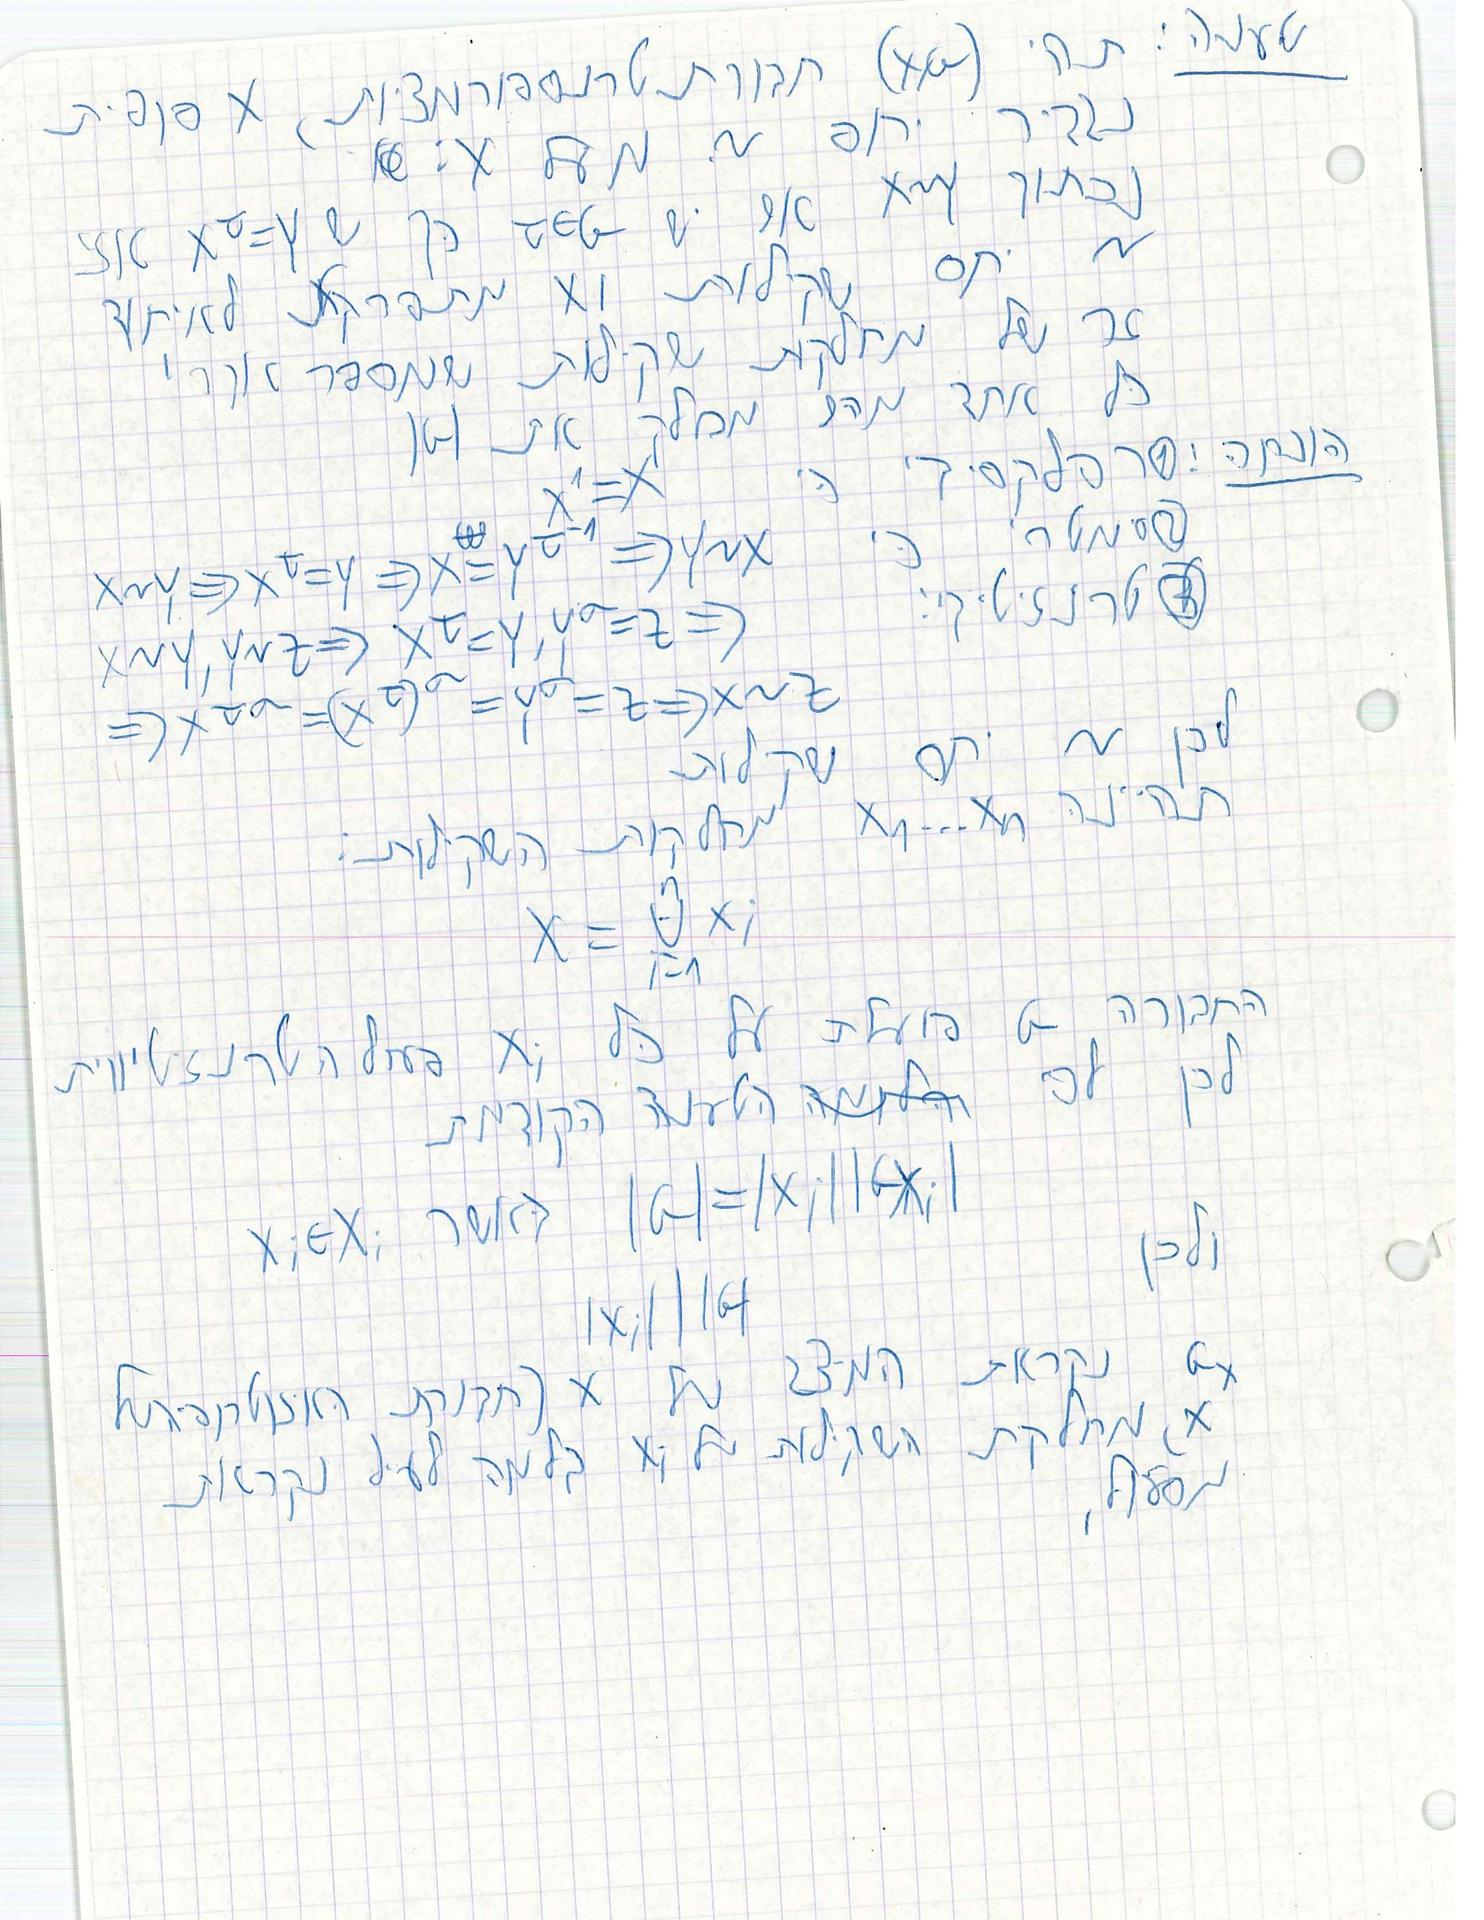 טענה: תהי (G,X) חבורת טרנספורמציות, X סופית
נגדיר יחס ~ מעל X:
נכתוב x~y אם יש τ∈G כך ש x^τ=y אזי
~ יחס שקילות ו X מתפרקת לאיחוד
זר של מחלקות שקילות שמספר אברי
כל אחד מהן מחלק את |G|
הוכחה: ① רפלקסיבי כי x^1=x
② סימטרי כי x~y⇒x^τ=y⇒x=y^{τ^-1}⇒y~x
③ טרנזיטיבי: x~y, y~z⇒ x^τ=y, y^σ=z ⇒
⇒x^{τσ}=(x^τ)^σ=y^σ=z⇒x~z
לכן ~ יחס שקילות
תהיינה X1...Xn מחלקות השקילות:
X = ⋃_{i=1}^n Xi
החבורה G פועלת על כל Xi פעולה טרנזיטיווית
לכן לפי הטענה הקודמת
|G|=|Xi||Gxi| כאשר xi∈Xi
ולכן
|Xi| | |G|
Gx נקראת המיצב של x (חבורת האיזוטרופיה של
x), מחלקת השקילות של xi בלמה לעיל נקראת
מסלול,